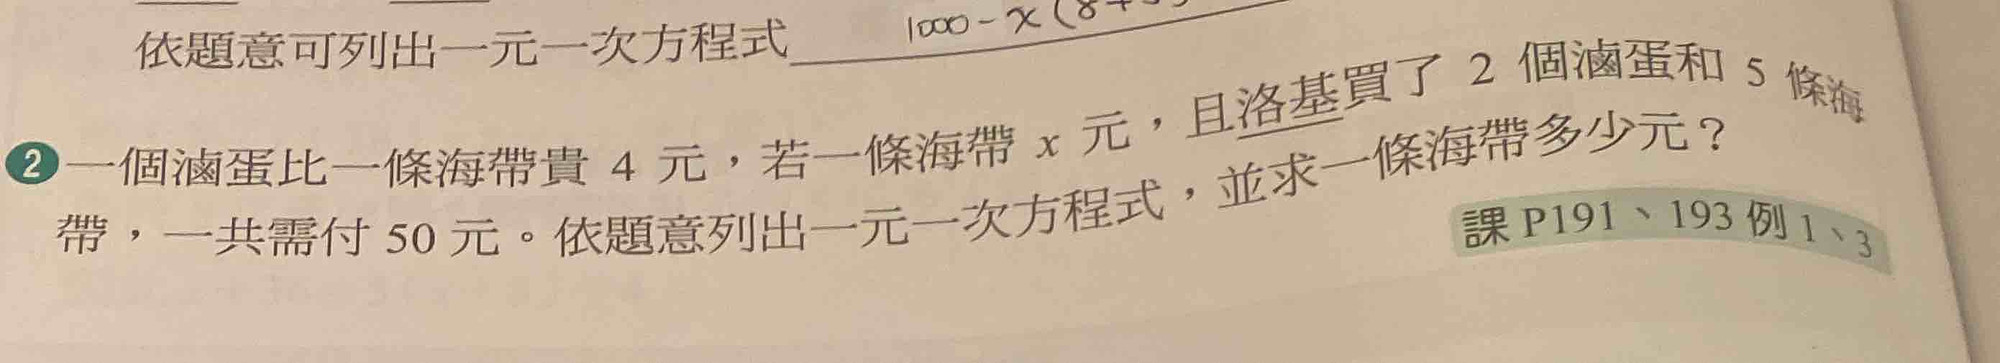 依題意可列出一元一次方程式 1000-x(8+
2 一個滷蛋比一條海帶貴 4 元，若一條海帶 x 元，且洛基買了 2 個滷蛋和 5 條海
帶，一共需付 50 元。依題意列出一元一次方程式，並求一條海帶多少元？
課 P191、193 例 1、3